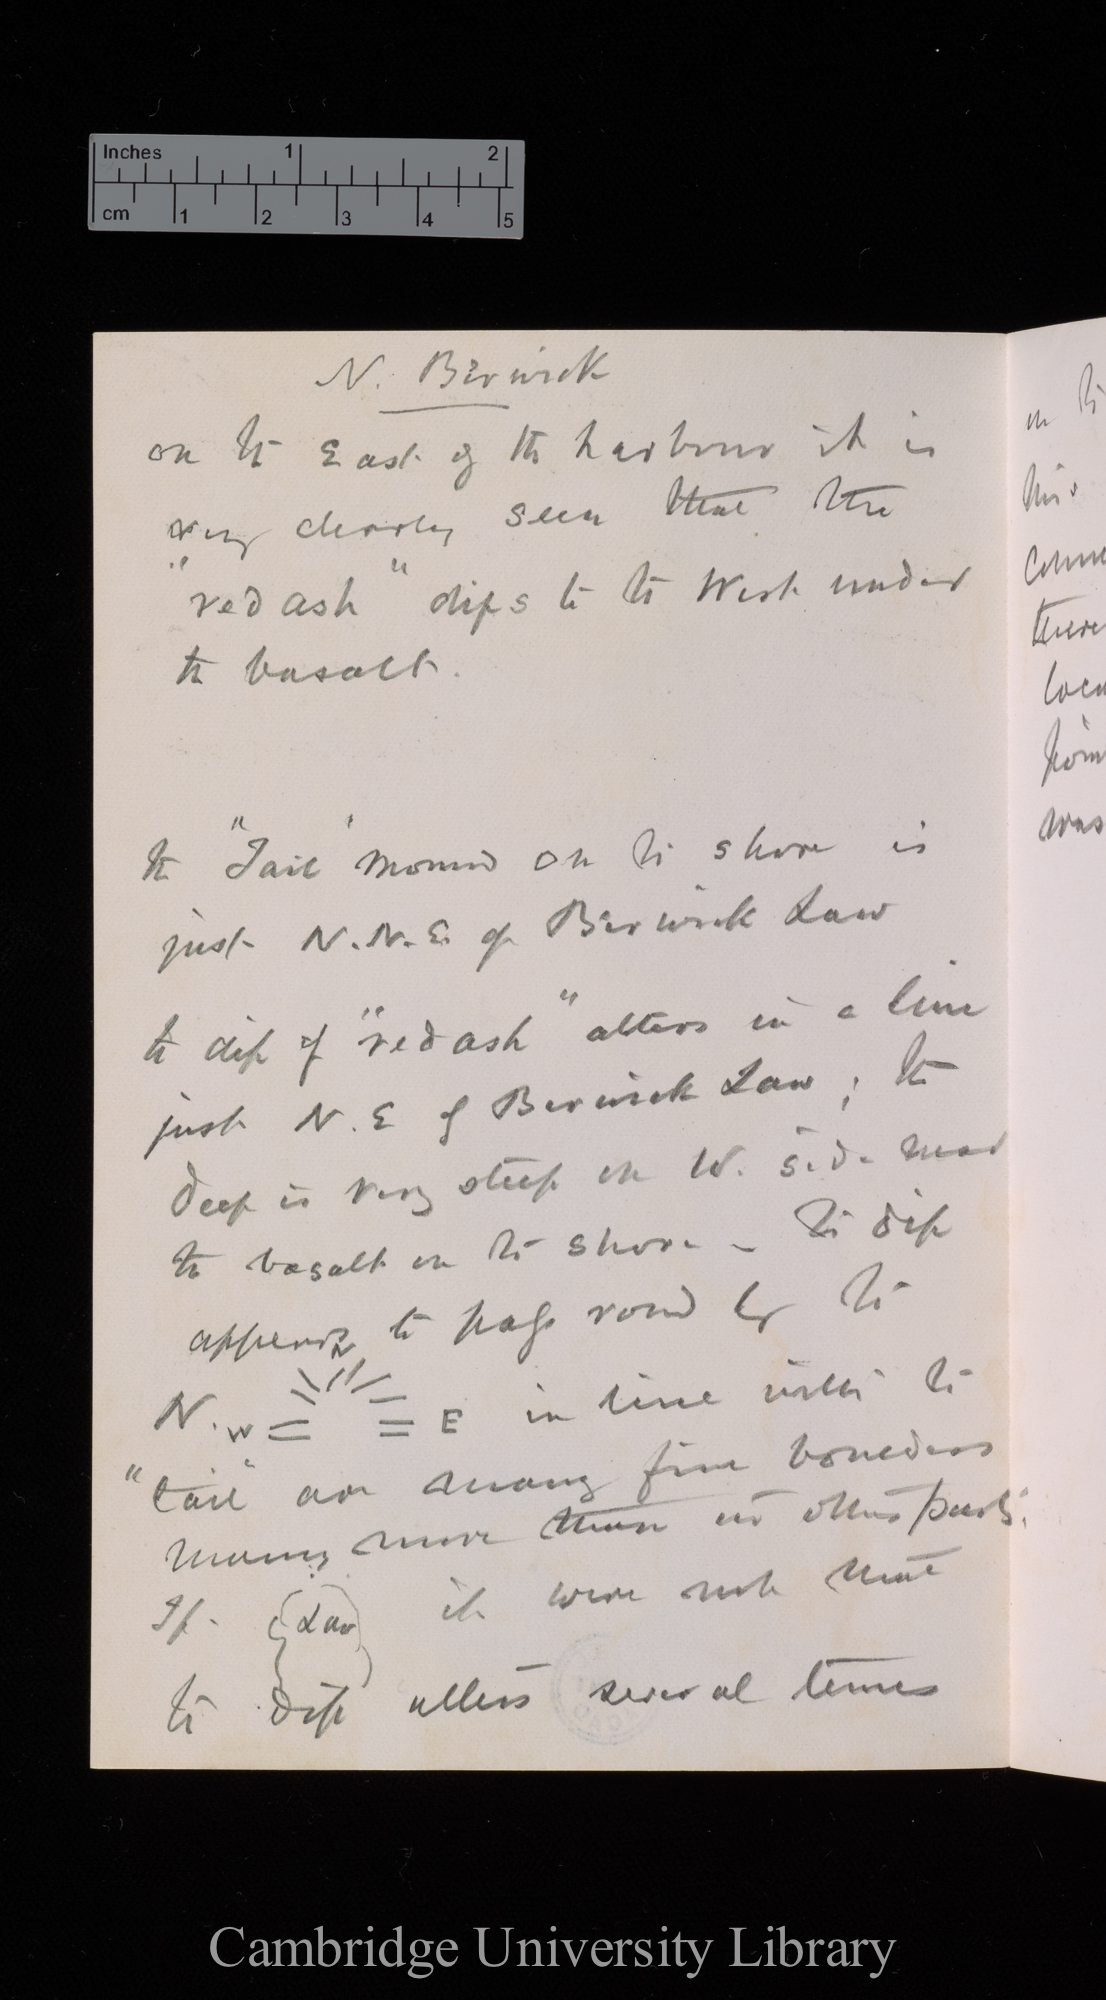 Inches 1 2
cm 1 2 3 4 5
N. Berwick
on the East of the harbour it is
very clearly seen that the
"red ash" dips to the West under
the basalt.
the "Tail" mound on the shore is
just N.N.E. of Berwick Law
the dip of "red ash" alters in a line
just N.E of Berwick Law; the
deep is very steep on W. side near
the basalt on the shore - the dip
appears to pass round by the
N. W E in line with the
"tail" are many fine boulders
many more than in other parts.
If it were not that
Law
the dip alters several times
on the
this
there
was
Cambridge University Library